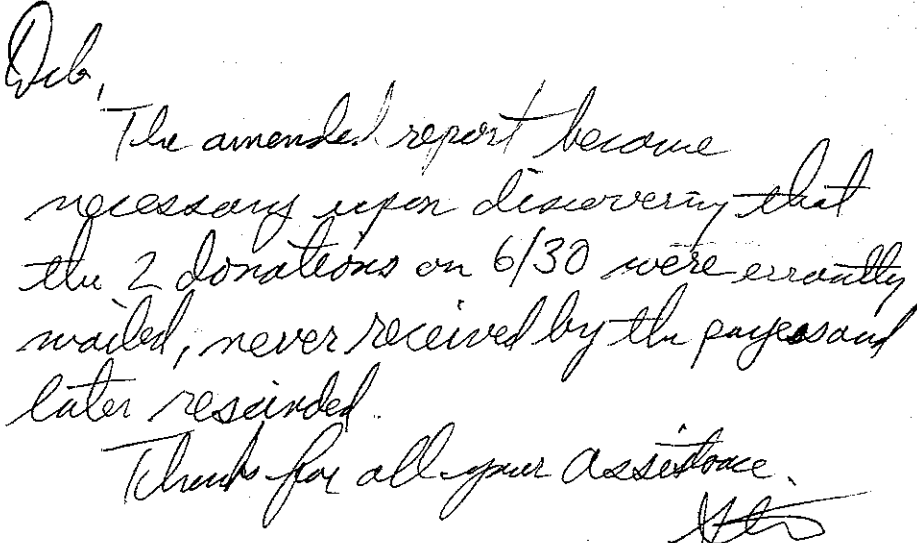 Deb,
The amended report became
necessary upon discovering that
the 2 donations on 6/30 were errantly
mailed, never received by the payees and
later rescinded.
Thanks for all your assistance.